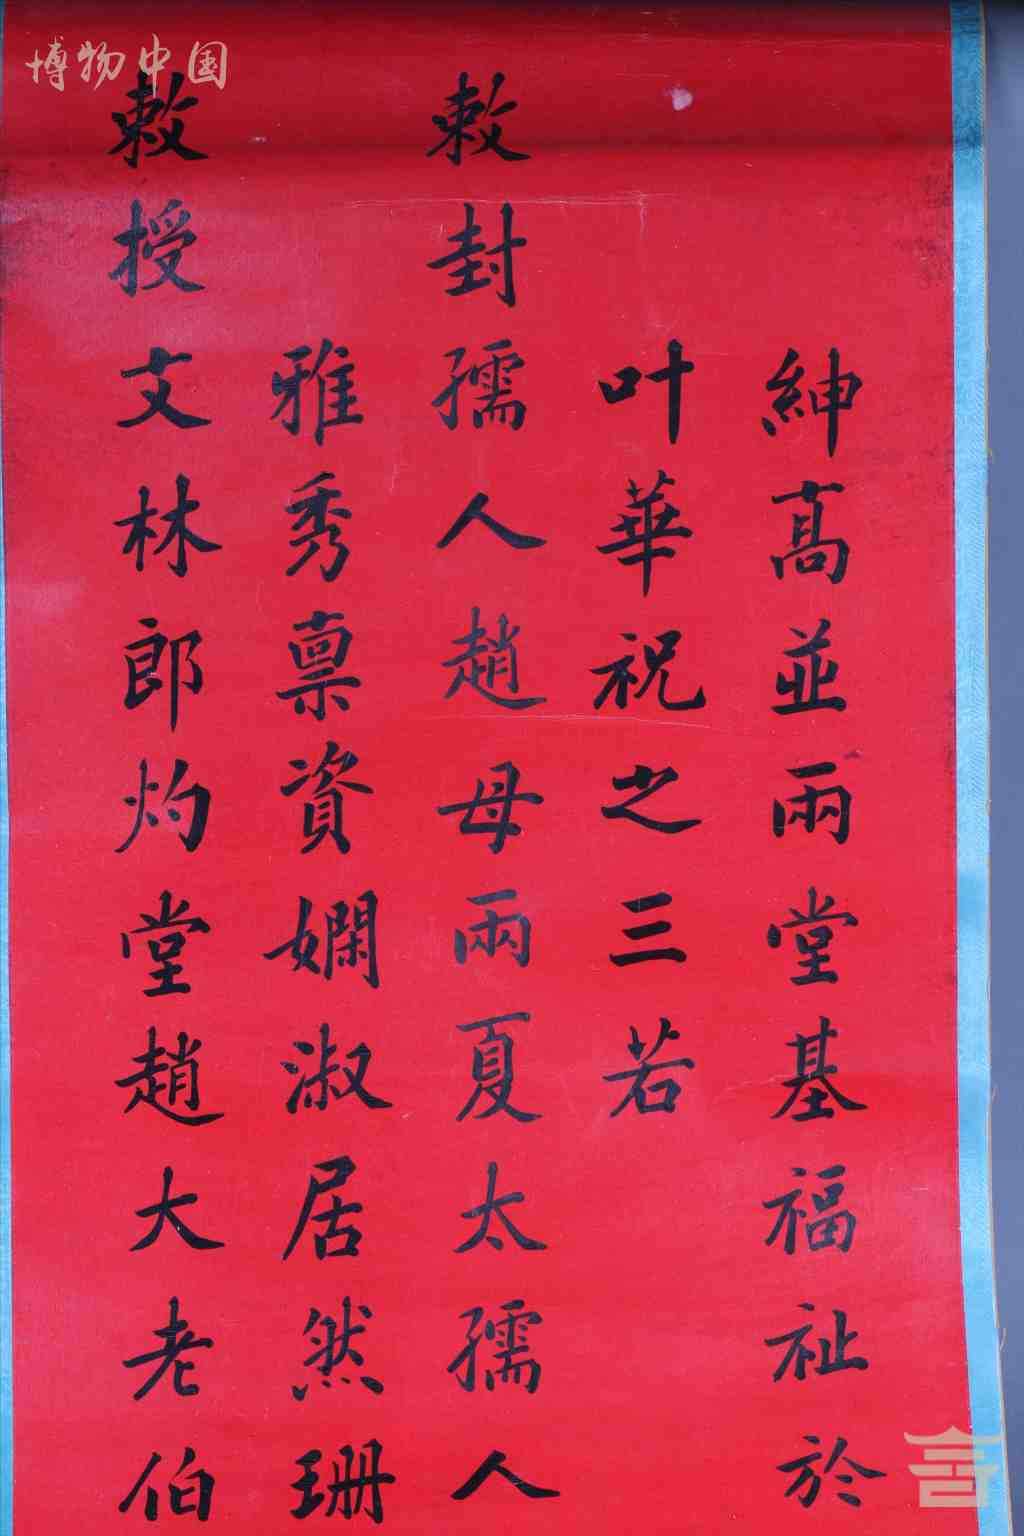 博物中国
紳高並兩堂基福祉於
叶華祝之三若
敕封孺人趙母兩夏太孺人
雅秀禀資嫻淑居然珊
敕授文林郎灼堂趙大老伯